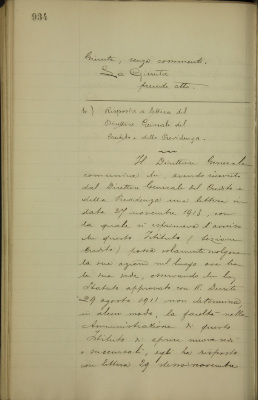 934
Giunta, senza commenti.
La Giunta
prende atto.
6) Risposta a lettera del
Direttore Generale del
Credito e della Previdenza.
Il Direttore Generale
comunica che, avendo ricevuto
dal Direttore Generale del Credito e
della Previdenza una lettera in
data 27 novembre 1913, con
la quale si esternava l'avviso
che questo Istituto (Sezione
Credito) possa solamente svolgere
la sua azione nel luogo ove ha
la sua sede, osservando che lo
Statuto approvato con R. Decreto
29 agosto 1911 non determina,
in alcun modo, la facoltà nella
Amministrazione di questo
Istituto di aprire nuove sedi
o succursali, egli ha risposto
con lettera 29 detto novembre